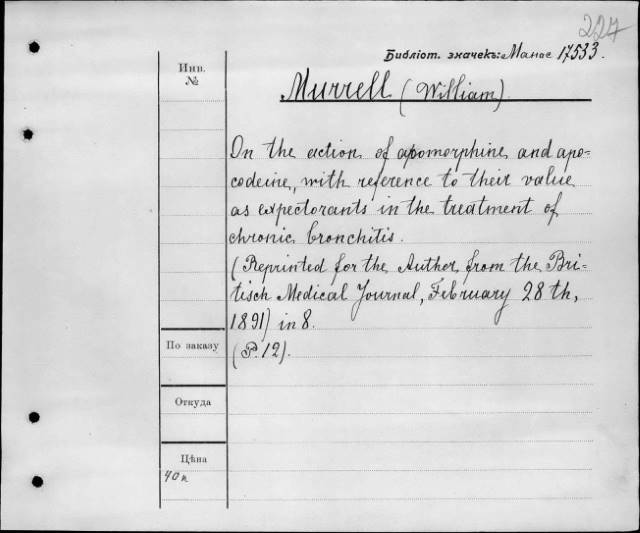 227
Библіот. значекъ: Манас 17533.
Инв.
№
Murrell (William).
On the action of apomorphine and apo-
codeine, with reference to their value
as expectorants in the treatment of
chronic bronchitis.
(Reprinted for the Author from the Bri-
tisch Medical Journal, February 28th,
1891) in 8.
По заказу
(P. 12).
Откуда
Цѣна
40к